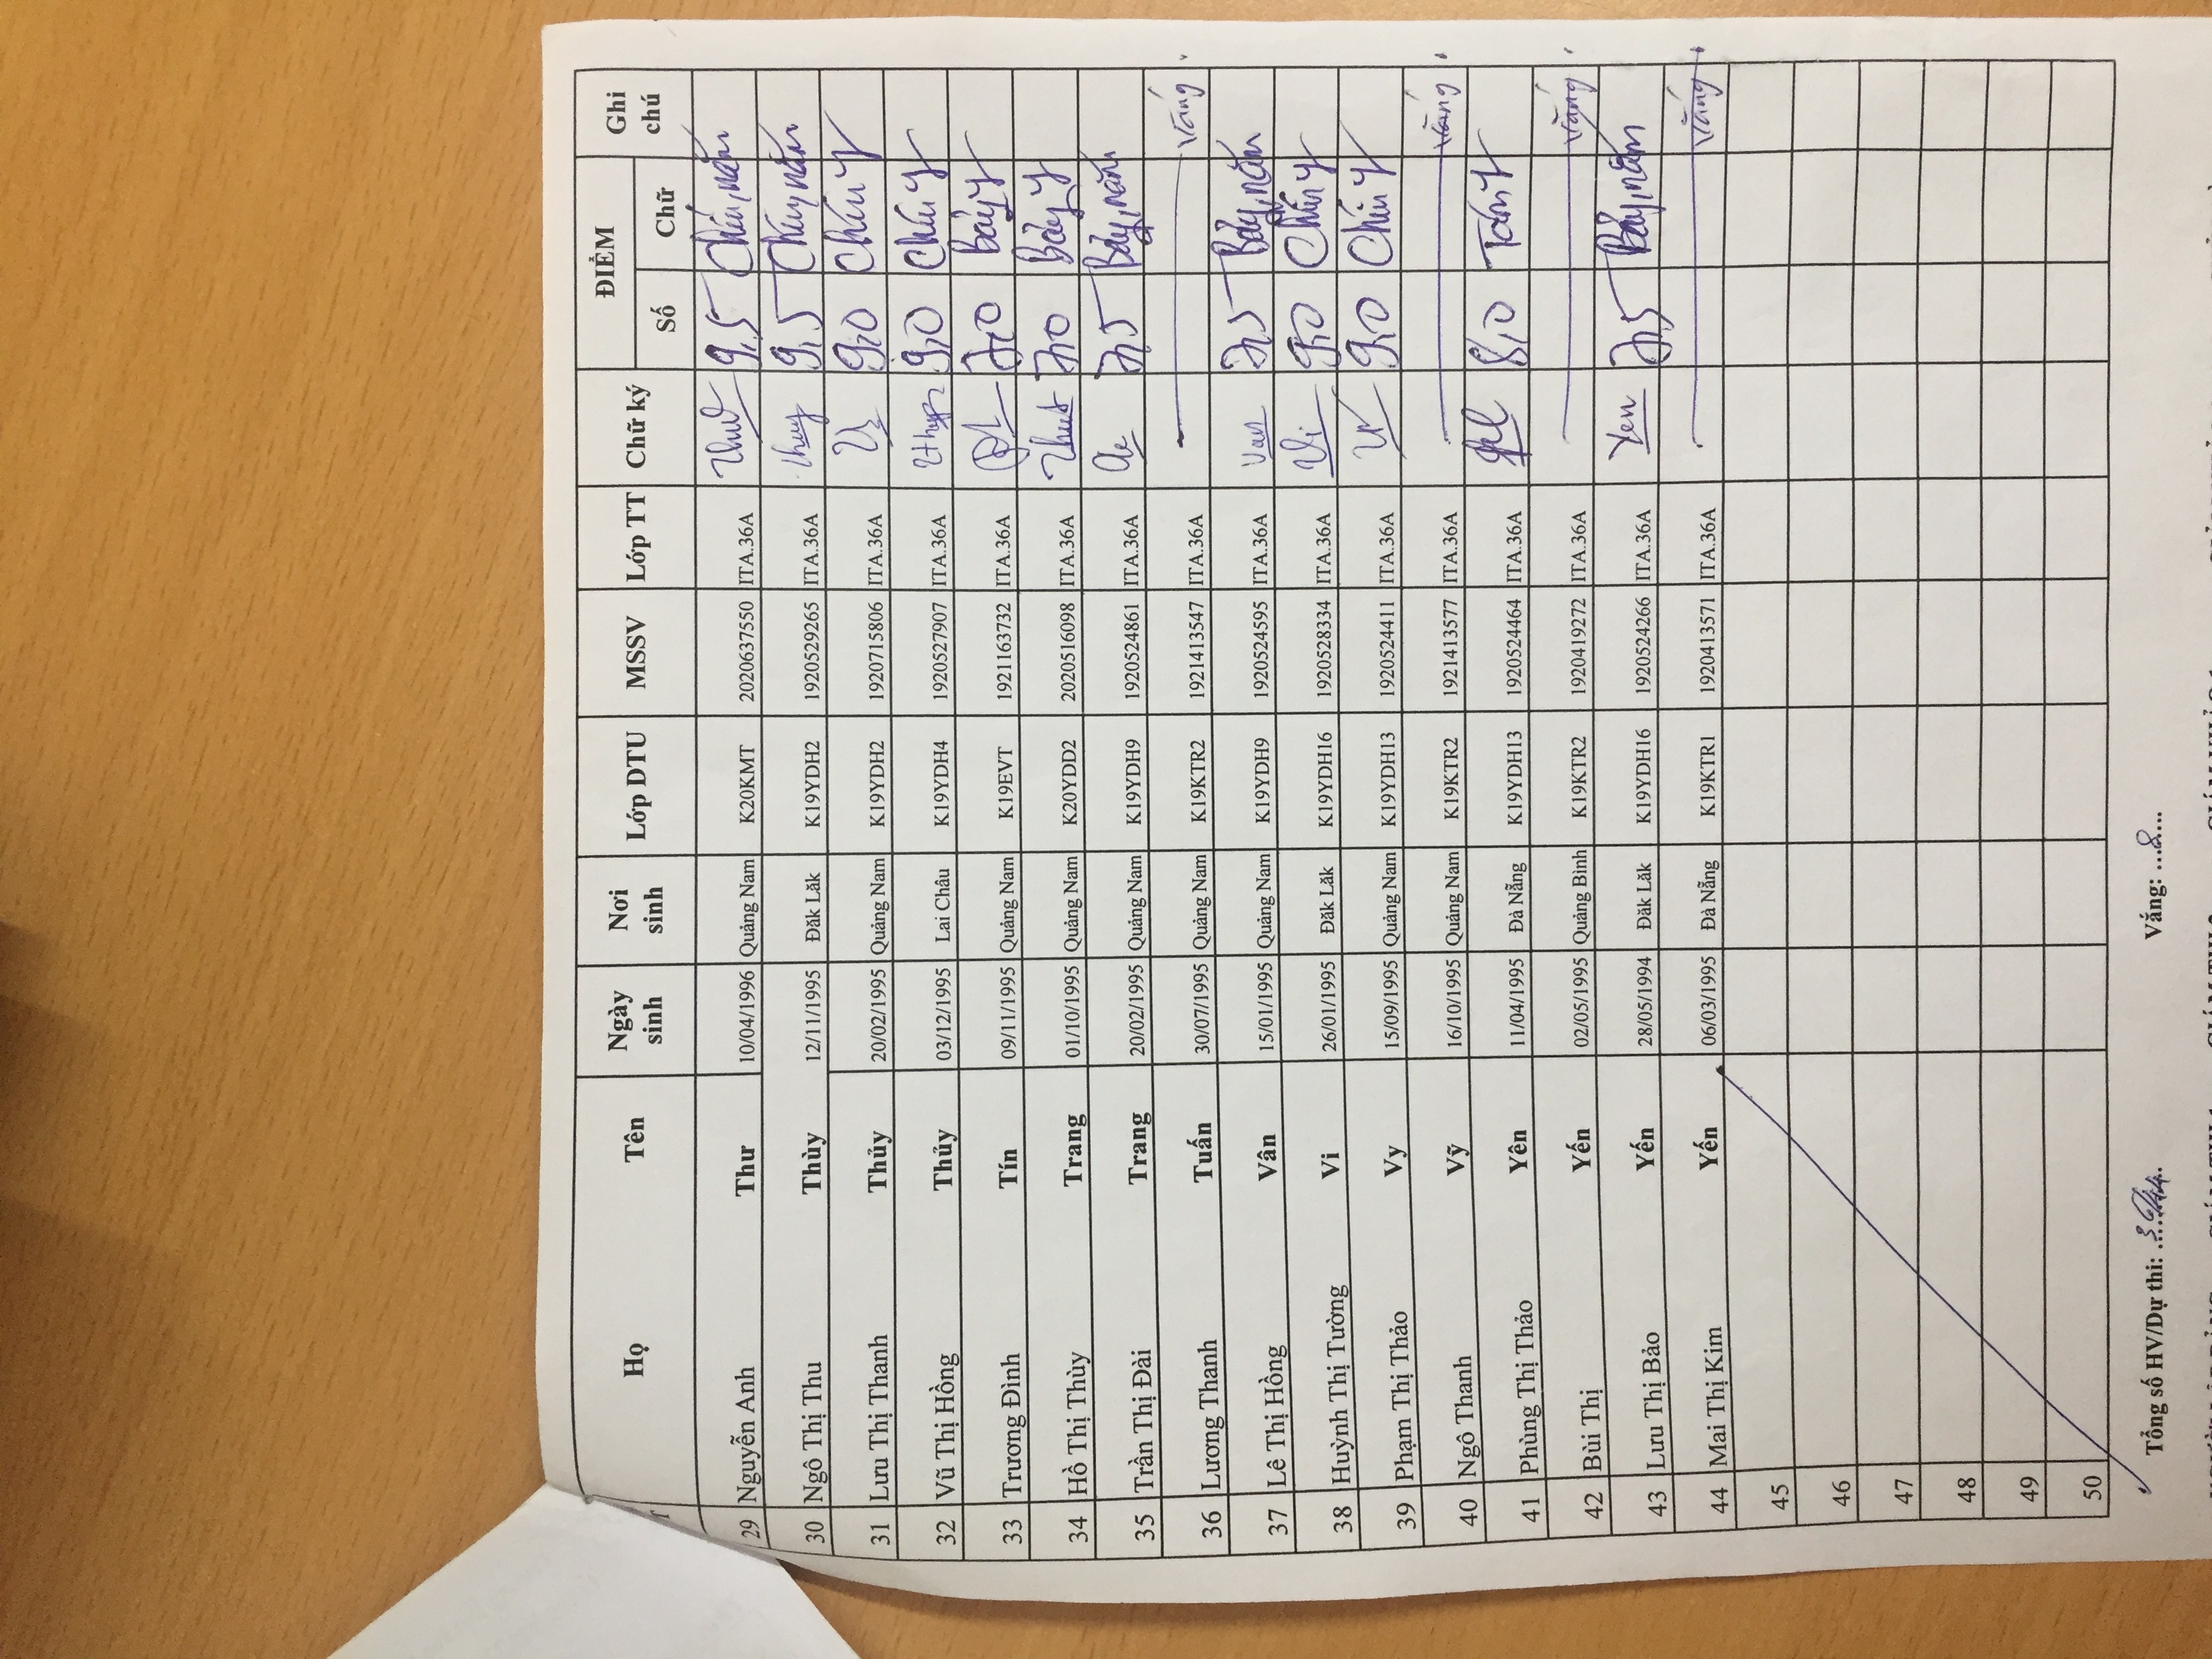 Họ Tên Ngày sinh Nơi sinh Lớp DTU MSSV Lớp TT Chữ ký ĐIỂM Số Chữ Ghi chú
29 Nguyễn Anh Thư 10/04/1996 Quảng Nam K20KMT 2020637550 ITA.36A Thư 9,5 Chín, năm
30 Ngô Thị Thu Thùy 12/11/1995 Đăk Lăk K19YDH2 1920529265 ITA.36A Thuy 9,5 Chín, năm
31 Lưu Thị Thanh Thủy 20/02/1995 Quảng Nam K19YDH2 1920715806 ITA.36A 9,0 Chín
32 Vũ Thị Hồng Thủy 03/12/1995 Lai Châu K19YDH4 1920527907 ITA.36A 9,0 Chín
33 Trương Đình Tín 09/11/1995 Quảng Nam K19EVT 1921163732 ITA.36A 7,0 Bảy
34 Hồ Thị Thùy Trang 01/10/1995 Quảng Nam K20YDD2 2020516098 ITA.36A 7,0 Bảy
35 Trần Thị Đài Trang 20/02/1995 Quảng Nam K19YDH9 1920524861 ITA.36A 7,5 Bảy, năm
36 Lương Thanh Tuấn 30/07/1995 Quảng Nam K19KTR2 1921413547 ITA.36A Vắng
37 Lê Thị Hồng Vân 15/01/1995 Quảng Nam K19YDH9 1920524595 ITA.36A Van 7,5 Bảy, năm
38 Huỳnh Thị Tường Vi 26/01/1995 Đăk Lăk K19YDH16 1920528334 ITA.36A Vi 9,0 Chín
39 Phạm Thị Thảo Vy 15/09/1995 Quảng Nam K19YDH13 1920524411 ITA.36A 9,0 Chín
40 Ngô Thanh Vỹ 16/10/1995 Quảng Nam K19KTR2 1921413577 ITA.36A Vắng
41 Phùng Thị Thảo Yên 11/04/1995 Đà Nẵng K19YDH13 1920524464 ITA.36A 8,0 Tám
42 Bùi Thị Yến 02/05/1995 Quảng Bình K19KTR2 1920419272 ITA.36A Vắng
43 Lưu Thị Bảo Yến 28/05/1994 Đăk Lăk K19YDH16 1920524266 ITA.36A Yen 7,5 Bảy, năm
44 Mai Thị Kim Yến 06/03/1995 Đà Nẵng K19KTR1 1920413571 ITA.36A Vắng
45
46
47
48
49
50
Tổng số HV/Dự thi: ..36/44.. Vắng: ...8....